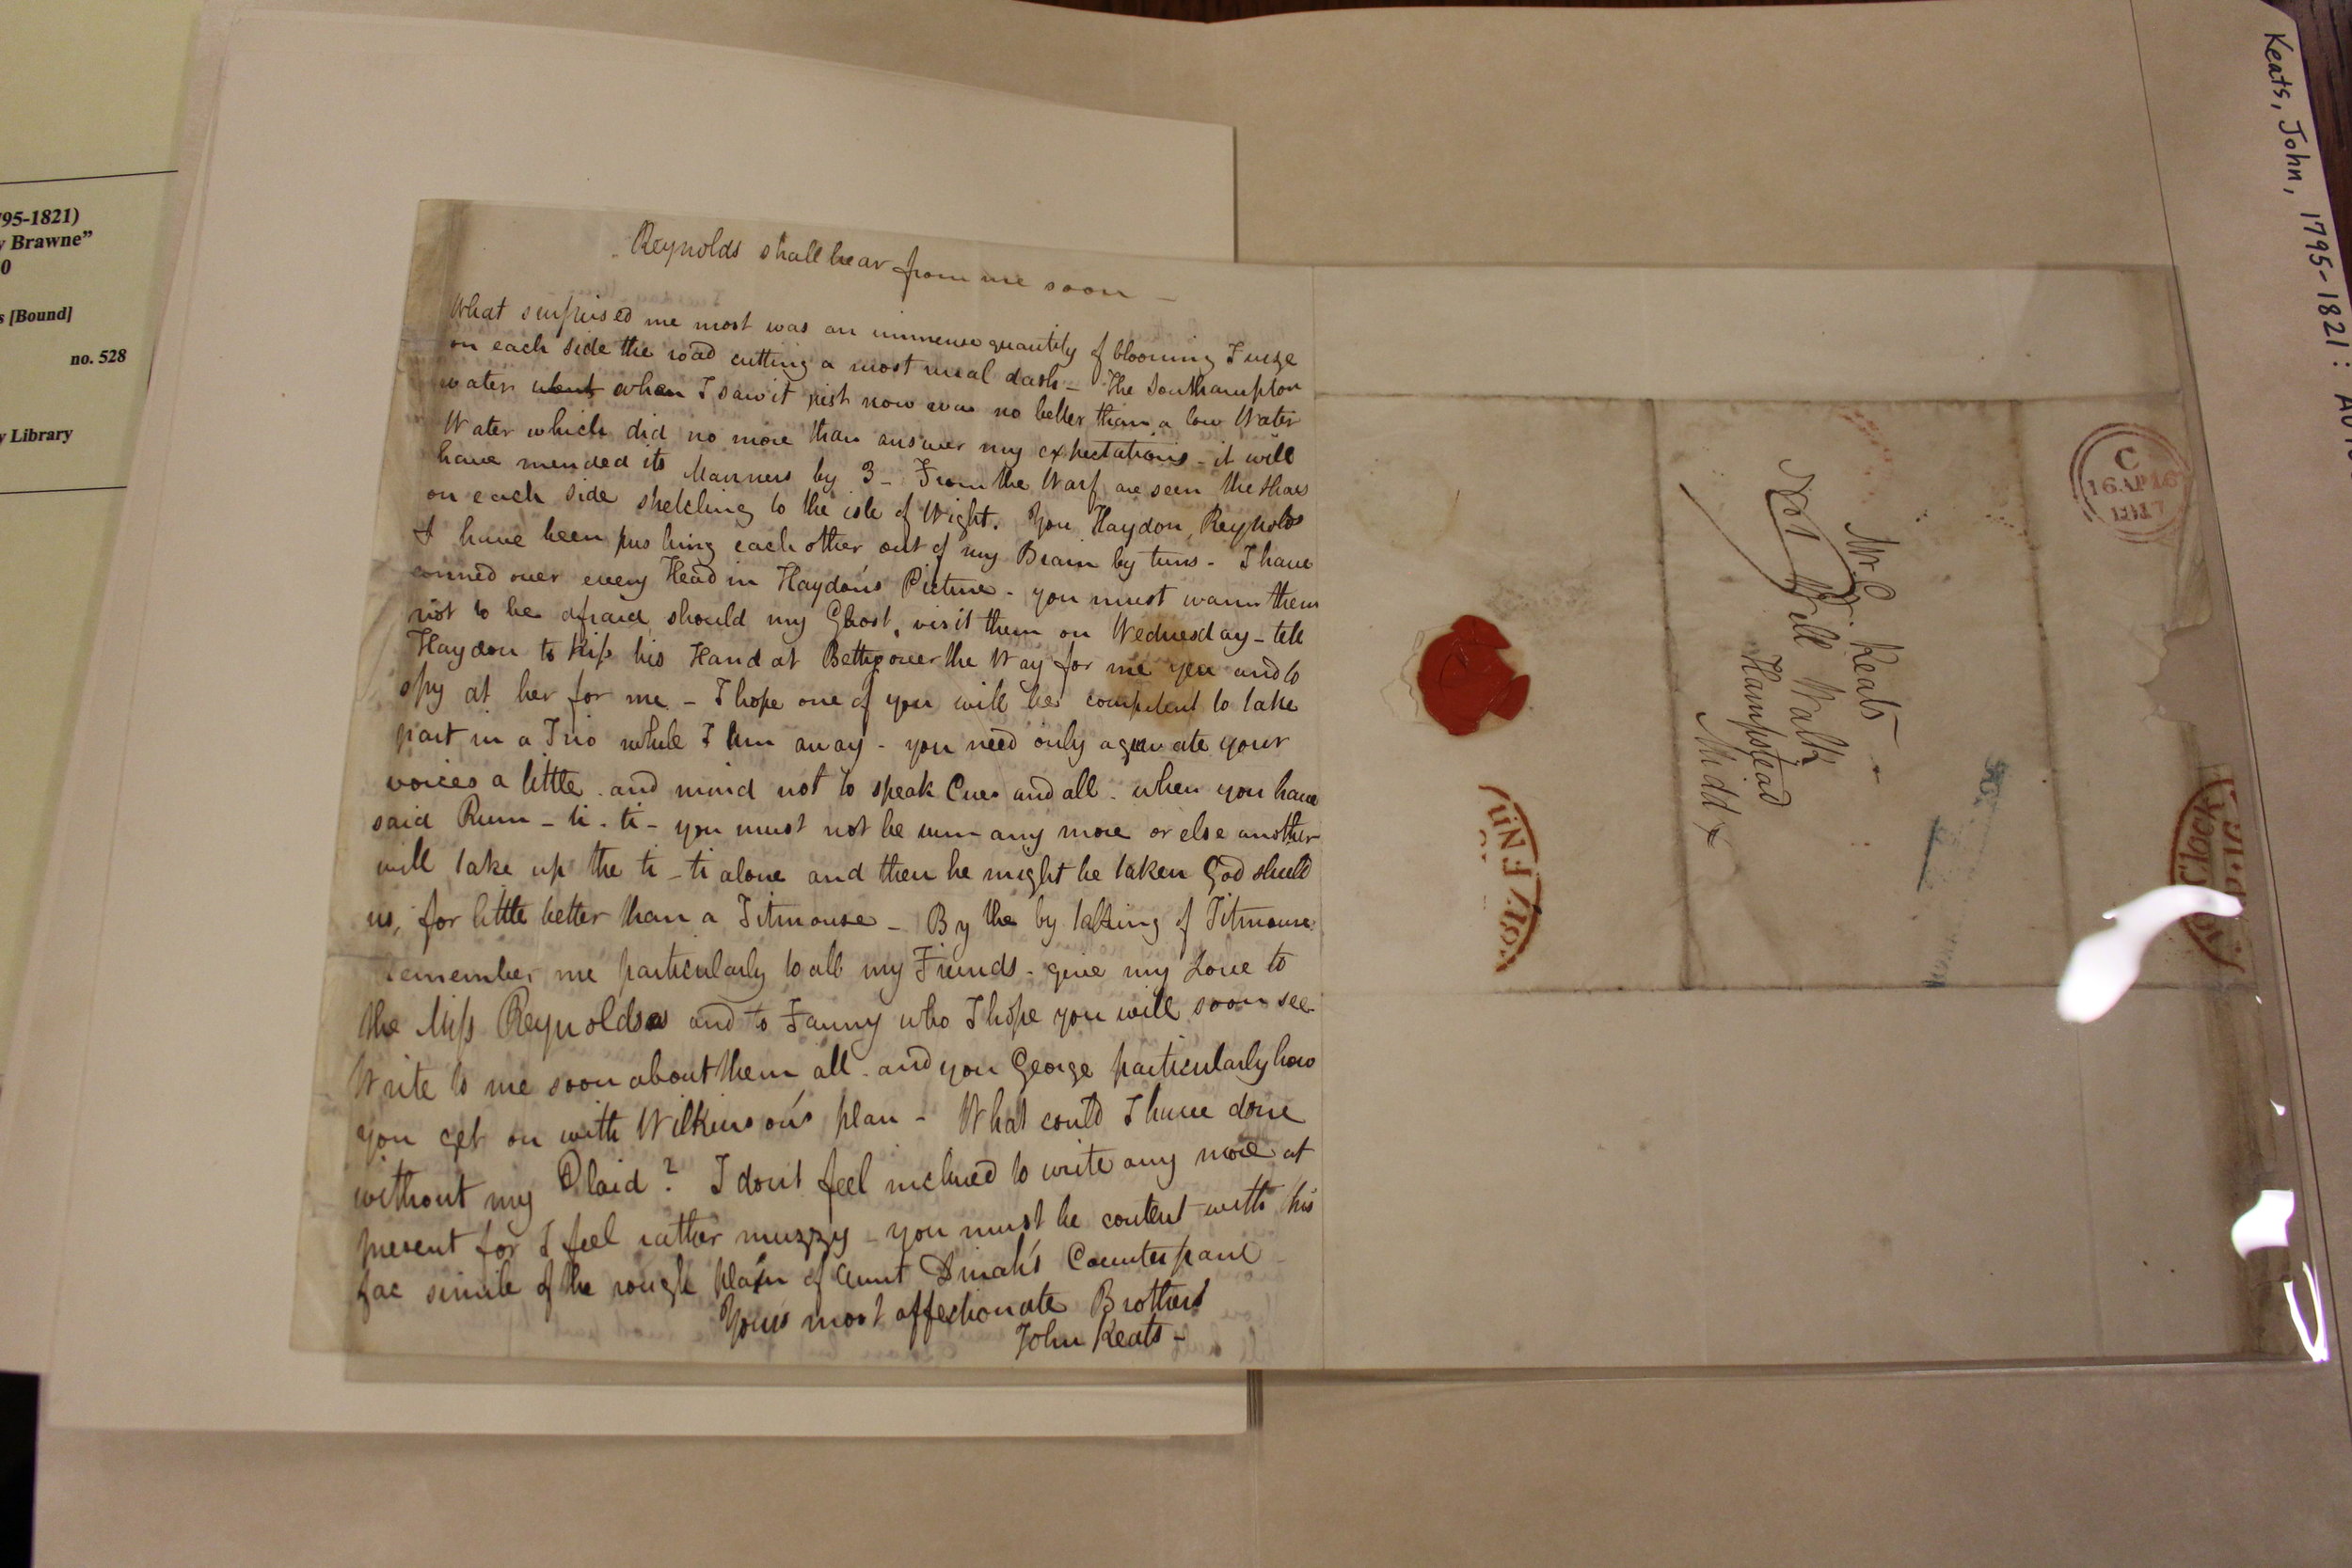 95-1821)
y Brawne”
0
s [Bound]
no. 528
y Library
Reynolds shall hear from me soon —
What surprised me most was an immense quantity of blooming Furze
on each side the road cutting a most rural dash — The Southampton
water went when I saw it just now was no better than a low Water
Water which did no more than answer my expectations — it will
have mended its Manners by 3 — From the Warf are seen the shores
on each side stretching to the isle of Wight. You, Haydon, Reynolds
&c have been pushing each other out of my Brain by turns — I have
conned over every Head in Haydon's Picture — you must warn them
not to be afraid should my Ghost visit them on Wednesday — tell
Haydon to Kiss his Hand at Betty over the Way for me yea and to
spy at her for me — I hope one of you will be competent to take
part in a Trio while I am away — you need only agravate your
voices a little and mind not to speak Cues and all — when you have
said Rum — ti — ti — you must not be rum any more or else another
will take up the ti — ti alone and then he might be taken God shield
us, for little better than a Titmouse — By the by talking of Titmouse
remember me particularly to all my Friends — give my Love to
the Miss Reynoldses and to Fanny who I hope you will soon see.
Write to me soon about them all — and you George particularly how
you get on with Wilkinson's plan — What could I have done
without my Plaid? I don't feel inclined to write any more at
present for I feel rather muzzy — you must be content with this
fac simile of the rough plan of Aunt Dinah's Counterpane
Your most affectionate Brother
John Keats —
Mr. Keats —
No 1 Well Walk
Hampstead
Middx
C
16 AP 16
1817
Clock
1817 F Nn
Keats, John, 1795-1821: